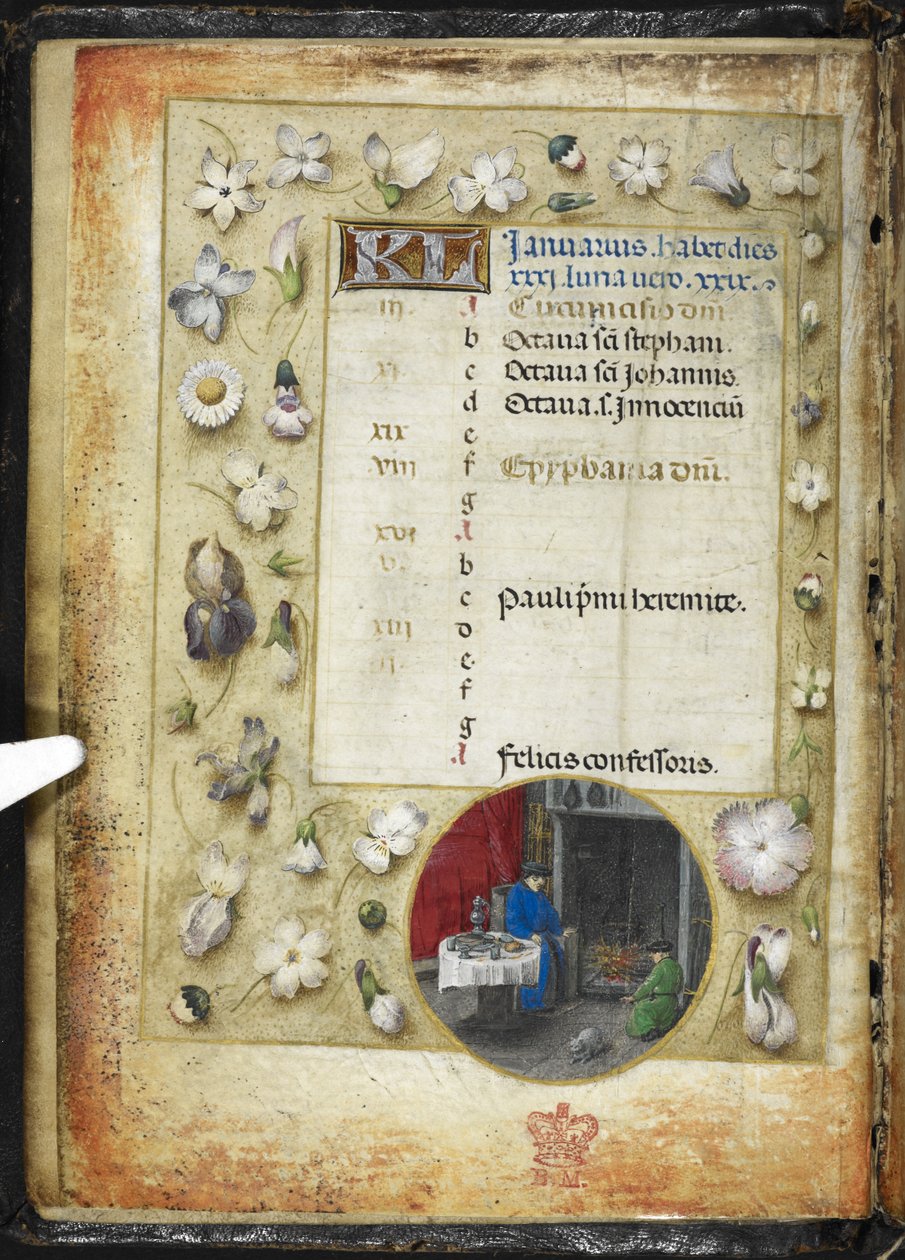 KL Januarius. habet dies
xxxj. luna uero. xxix.
iij. A Circumcisio dm̄
b Octaua sc̄i stephani.
xj c Octaua sc̄i Johannis.
d Octaua. s. Jnnocenciū
xix e
viij f Epyphania dm̄.
g
xvj A
v. b
c Pauli p̄mi heremite.
xiij d
ij. e
f
g
A Felicis confessoris.
B.M.